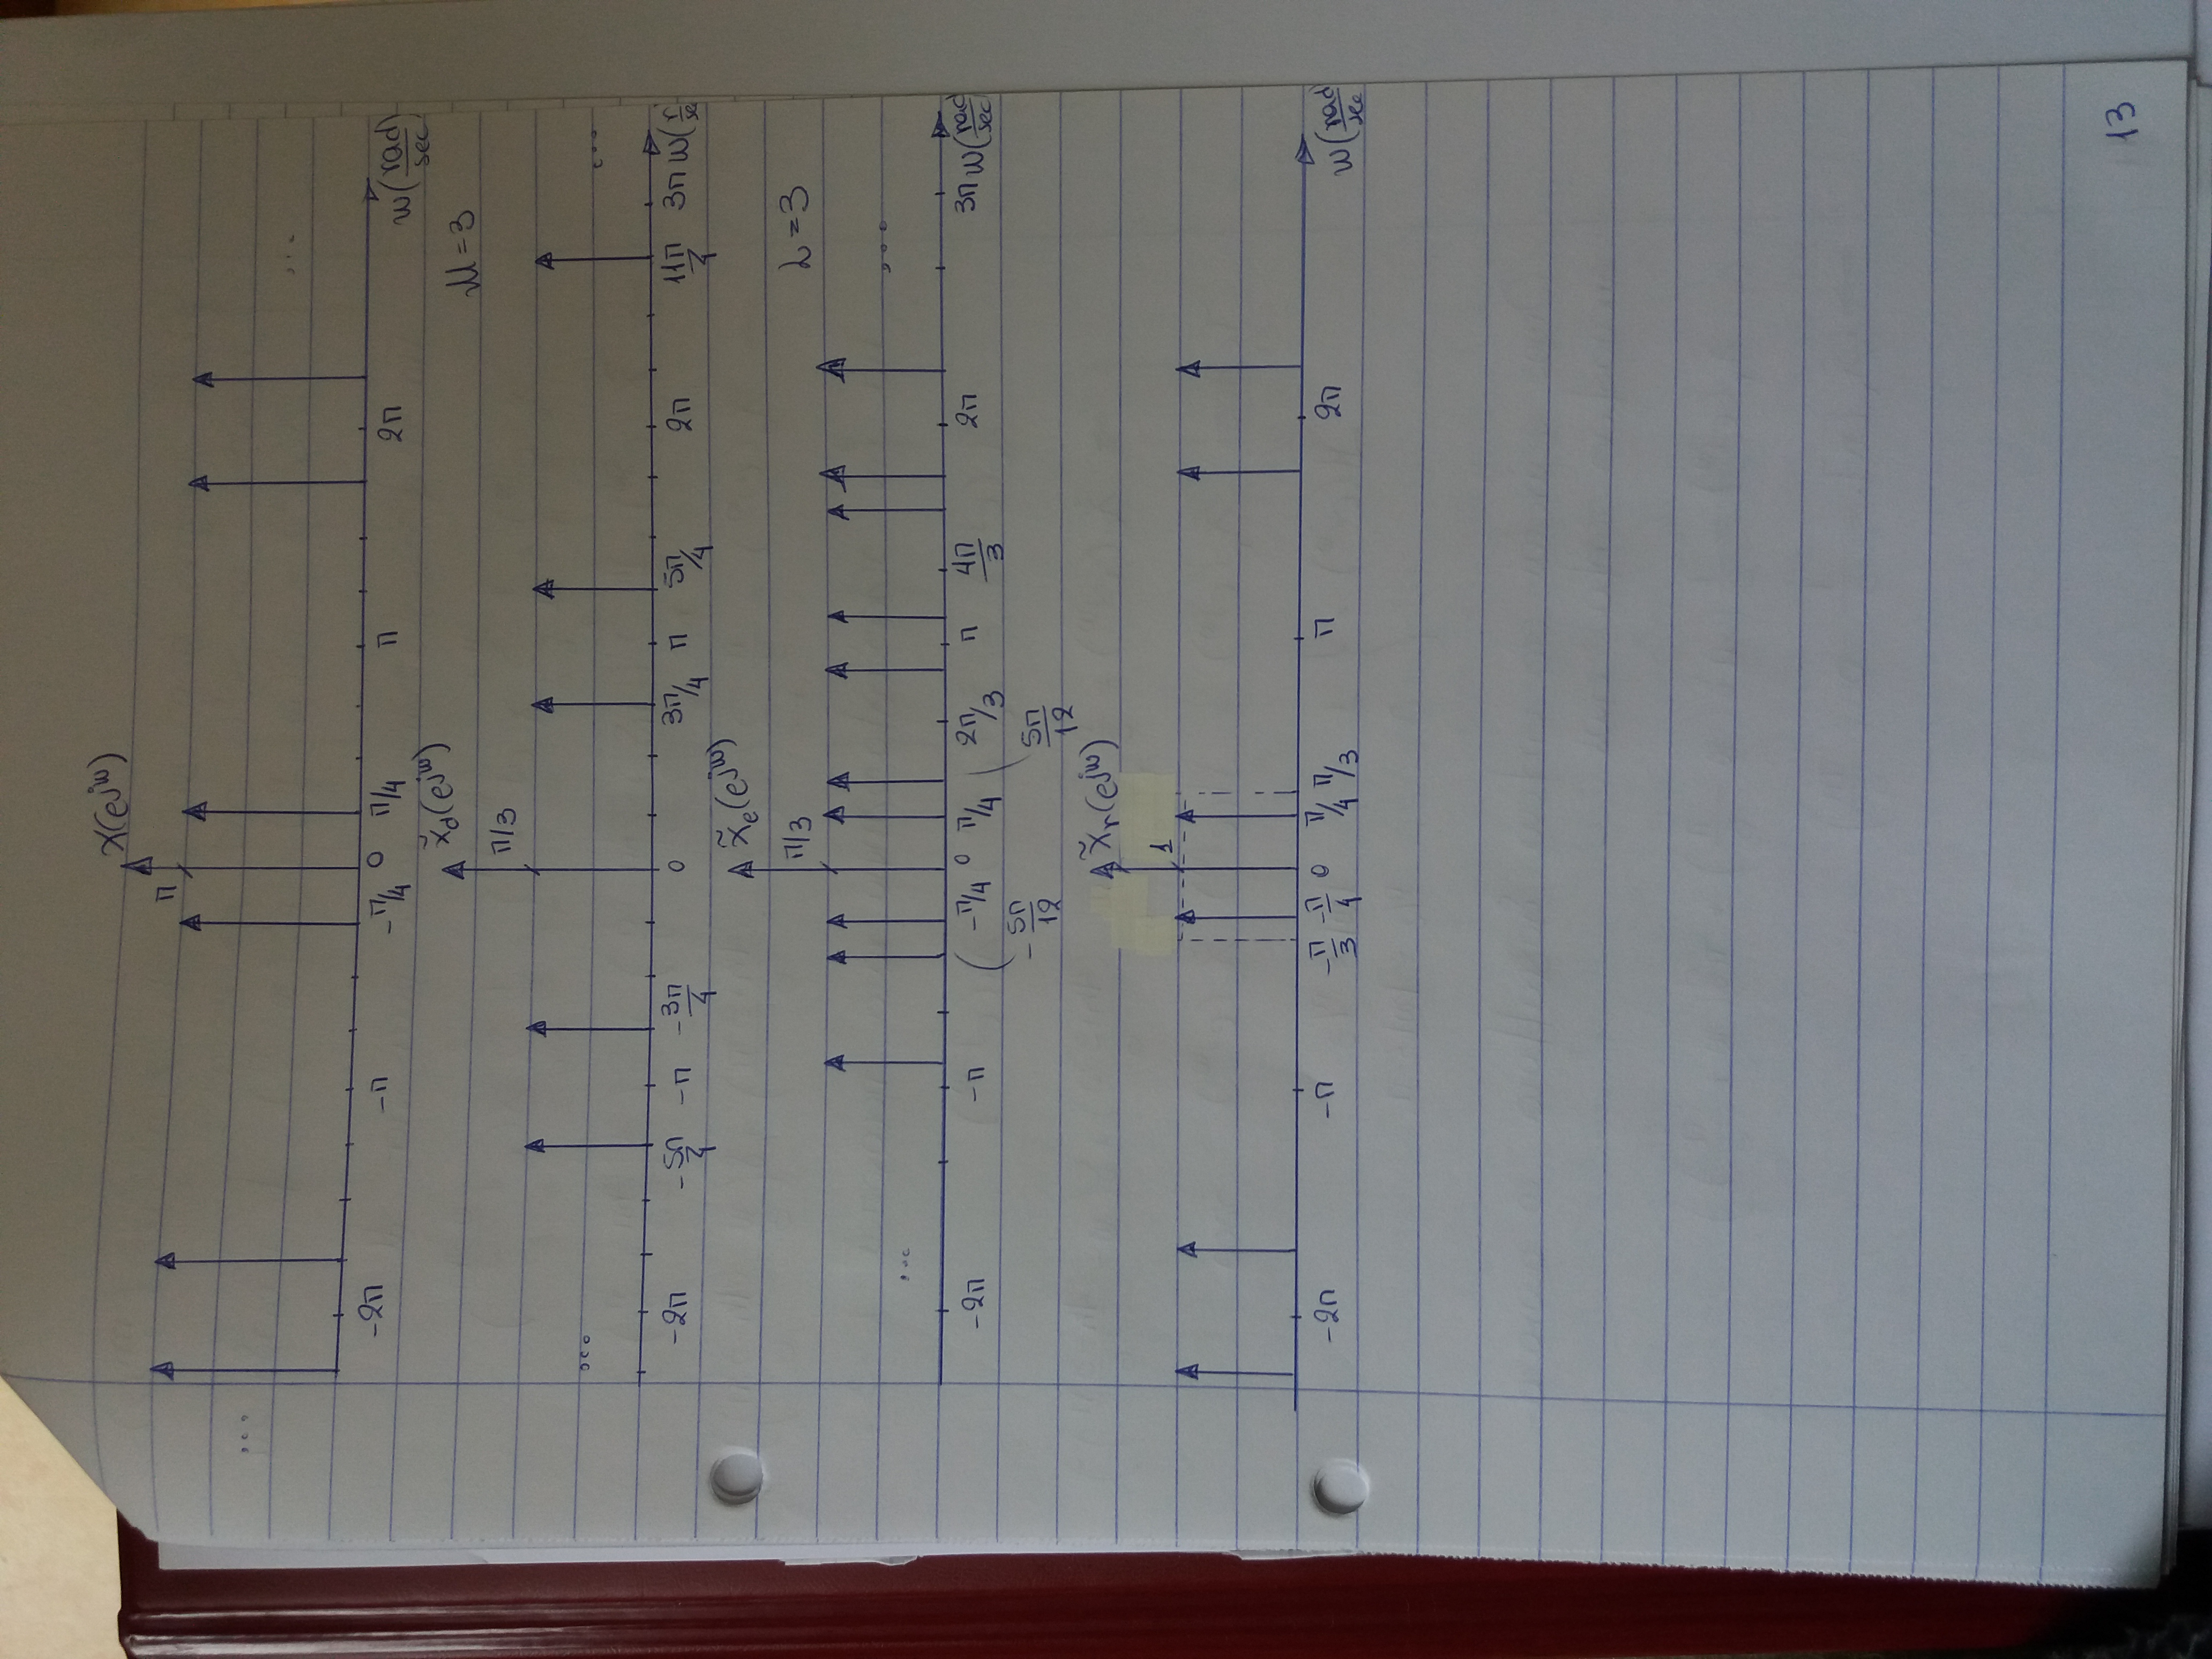 X(e^jw)
π
... ...
-2π -π -π/4 0 π/4 π 2π w(rad/sec)
x̃d(e^jw)
M=3
π/3
... ...
-2π -5π/4 -π -3π/4 0 3π/4 π 5π/4 2π 11π/4 3π w(r/se
x̃e(e^jw)
L=3
π/3
... ...
-2π -π -π/4 0 π/4 2π/3 π 4π/3 2π 3π w(rad/sec
-5π/12 5π/12
x̃r(e^jw)
1
-2π -π -π/3 -π/4 0 π/4 π/3 π 2π w(rad/sec
13